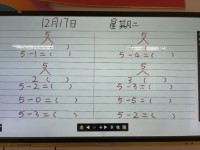 12月17日 星期二
5 5
( ) ( )
5-1=( ) 5-4=( )
5 5
2 ( ) 3 ( )
5-2=( ) 5-3=( )
5-0=( ) 5-5=( )
5-3=( ) 5-2=( )